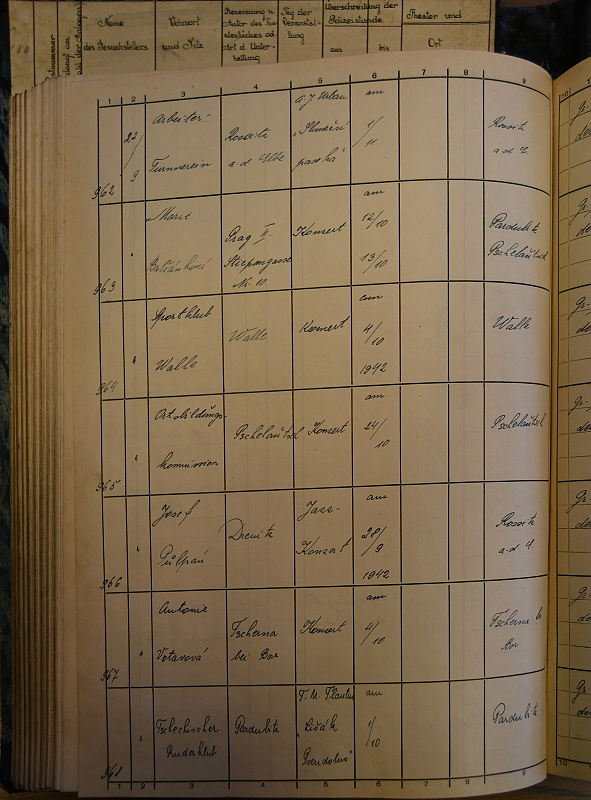 Name
des Gesuchstellers
Wohnort
und Sitz
Tag der
Veranstal-
tung
Überschreitung der
Polizeistunde
am
bis
Theater und
Ort
1 2 3 4 5 6 7 8 9 10
962
22/9
Arbeiter-
Turnverein
Rossitz
a. d. Elbe
a. J. Urban
paseka"
am
1/11
Rossitz
a. d. E.
963
"
Marie
Prag II.
Stepangasse
Nr. 10
Konzert
am
12/10
13/10
Pardubitz
Pschelautsch
964
"
Sportklub
Walle
Walle
Konzert
am
4/10
1942
Walle
965
"
Ortsbildungs-
kommission
Pschelautsch
Konzert
am
24/10
Pschelautsch
966
"
Josef
Půlpán
Drenitz
Jazz-
Konzert
am
28/9
1942
Rossitz
a. d. E.
967
"
Antonie
Votavová
Tscherna
bei Bor
Konzert
am
4/10
Tscherna b.
Bor
968
"
Tschechischer
Ruderklub
Pardubitz
T. M. Plautus
"Lišák
Pseudolus"
am
1/10
Pardubitz
1 2 3 4 5 6 7 8 9 10